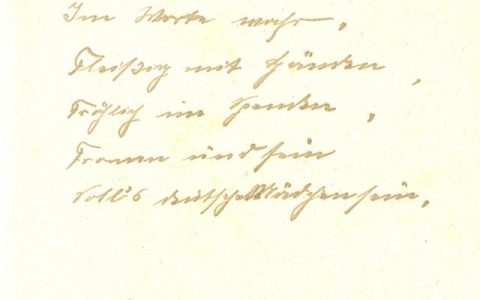 Im Worte wahr,
Fleißig mit Händen,
Fröhlich im Spenden,
Fromm und fein
Soll's deutsche Mädchen sein.